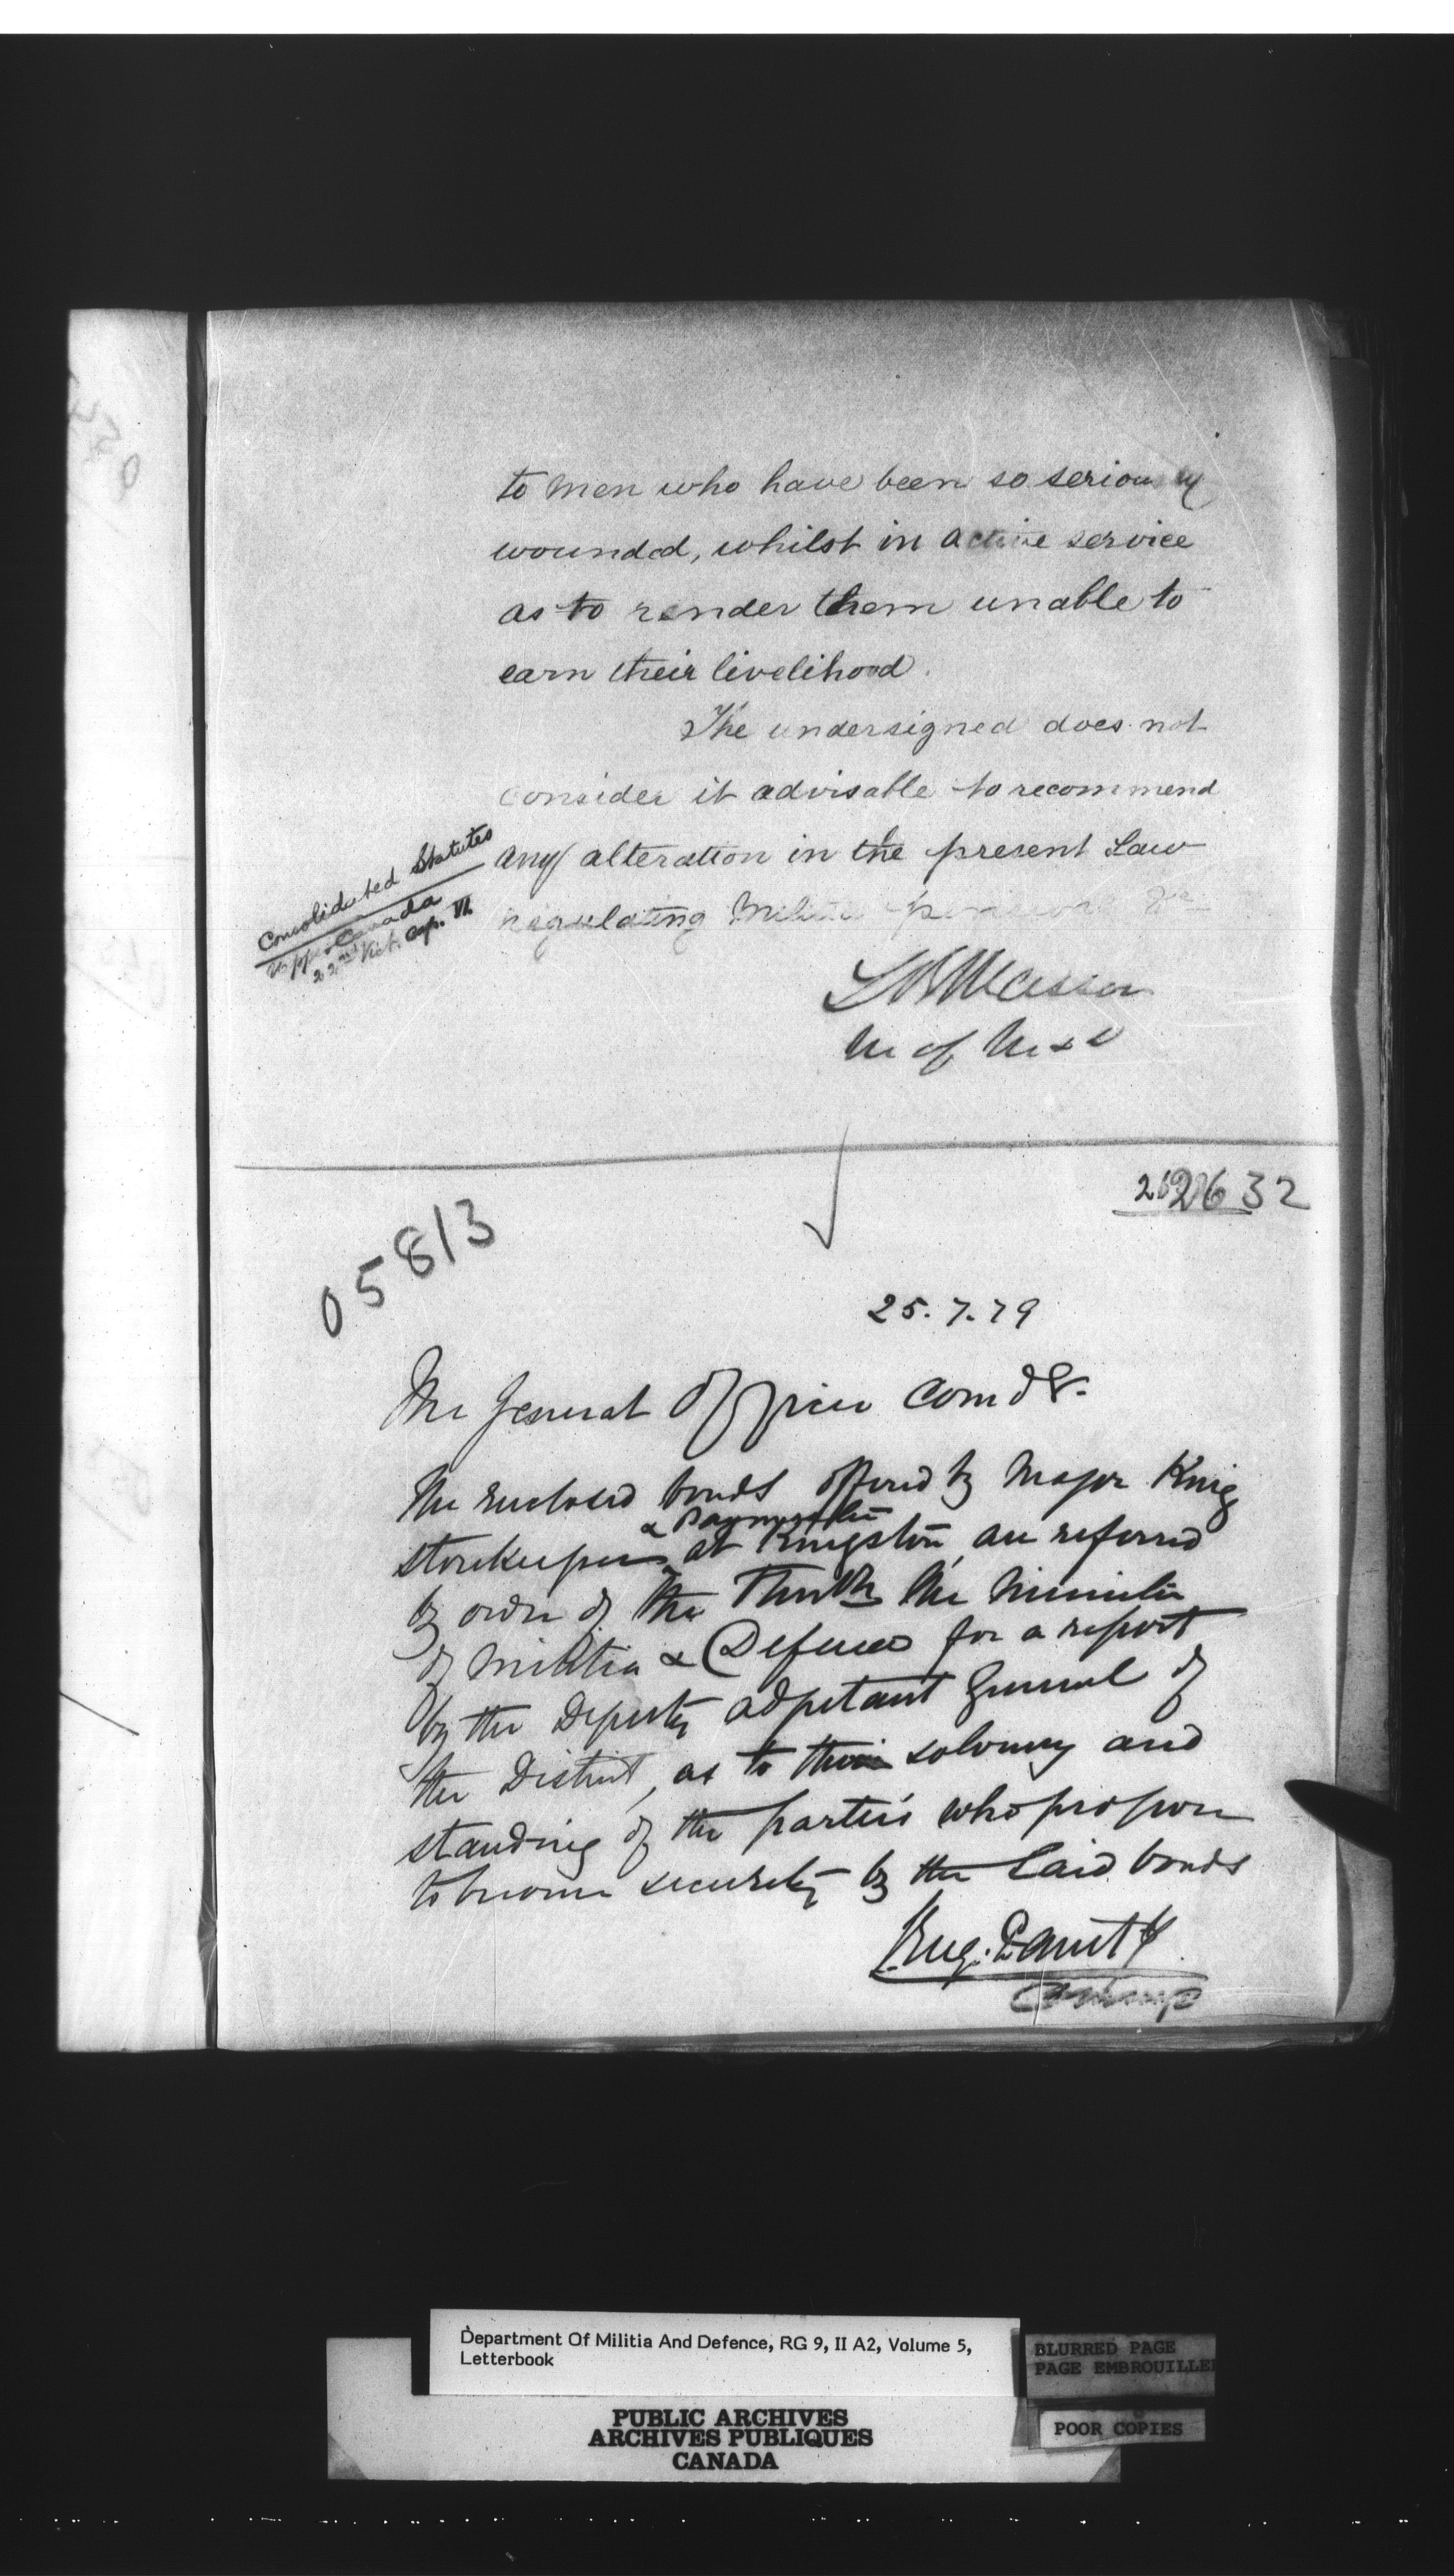 to men who have been so seriously
wounded, whilst in active service
as to render them unable to
earn their livelihood.
The undersigned does not
consider it advisable to recommend
any alteration in the present Law
regulating Militia pensions &c
Consolidated Statutes
Upper Canada
22nd Vict. Cap. VI.
L R Masson
M of M & D
32
05813
25.7.79
The General Officer Comdg.
The enclosed bonds offered by Major King
& Paymaster
storekeeper at Kingston, are referred
by order of the The Minister
of Militia & Defence for a report
by the Deputy Adjutant General of
the District, as to the solvency and
standing of the parties who propose
to become security by the said bonds
Eug. Panet
Department Of Militia And Defence, RG 9, II A2, Volume 5,
Letterbook
BLURRED PAGE
PAGE EMBROUILLEE
POOR COPIES
PUBLIC ARCHIVES
ARCHIVES PUBLIQUES
CANADA